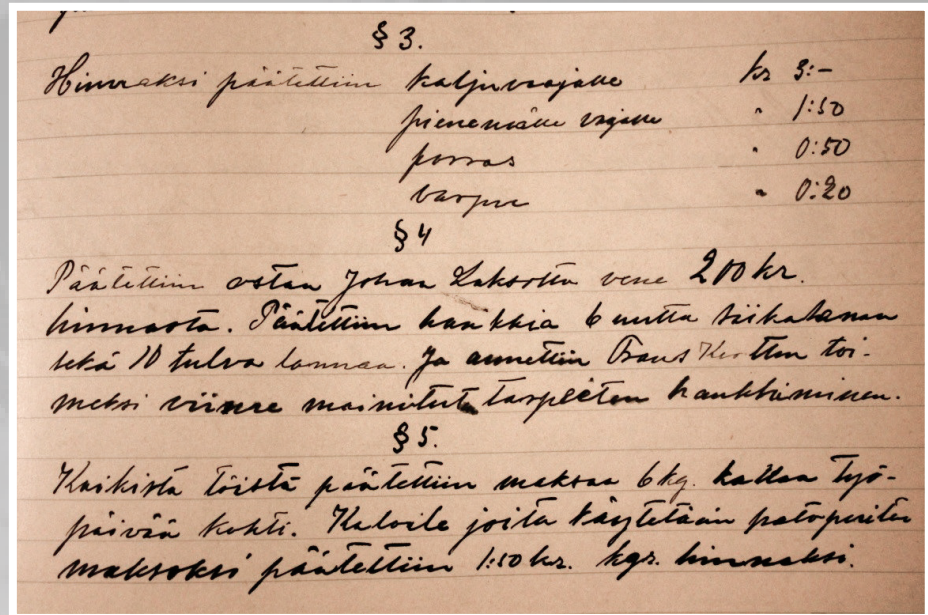 § 3.
Hinnaksi päätettiin kaljuvaajalle kr 3:-
pienemälle vajalle " 1:50
porras " 0:50
varpu " 0:20
§ 4
Päätettiin ostaa Johan Laksolta vene 200 kr.
hinnasta. Päätettiin hankkia 6 uutta
sekä 10 tulva lannaa. Ja annettiin Frans toi-
meksi viime mainitut tarpeiten hankkiminen.
§ 5.
Kaikista töistä päätettiin maksaa 6 kg. kallaa työ-
päivää kohti. Kaloile joita käytetään
maksoksi päätettiin 1:50 kr. kgr. hinnaksi.